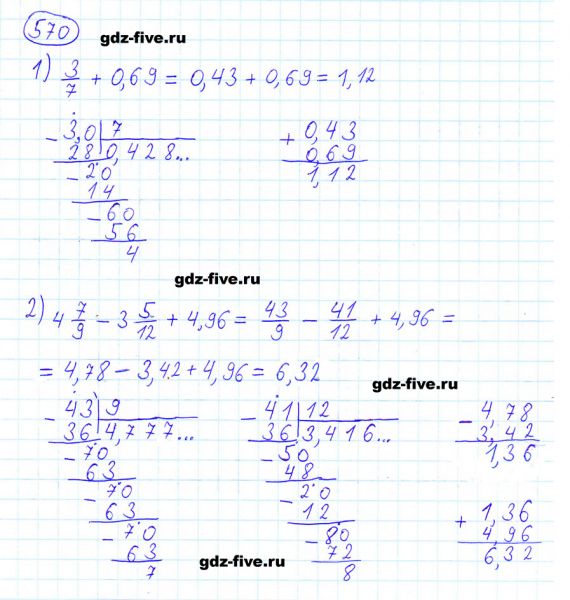 570
gdz-five.ru
1) 3/7 + 0,69 = 0,43 + 0,69 = 1,12
- 3,0 | 7
28 | 0,428...
- 20
14
- 60
56
4
+ 0,43
0,69
1,12
gdz-five.ru
2) 4 7/9 - 3 5/12 + 4,96 = 43/9 - 41/12 + 4,96 =
= 4,78 - 3,42 + 4,96 = 6,32
gdz-five.ru
- 43 | 9
36 | 4,777...
- 70
63
- 70
63
- 70
63
7
- 41 | 12
36 | 3,416...
- 50
48
- 20
12
- 80
72
8
- 4,78
3,42
1,36
+ 1,36
4,96
6,32
gdz-five.ru